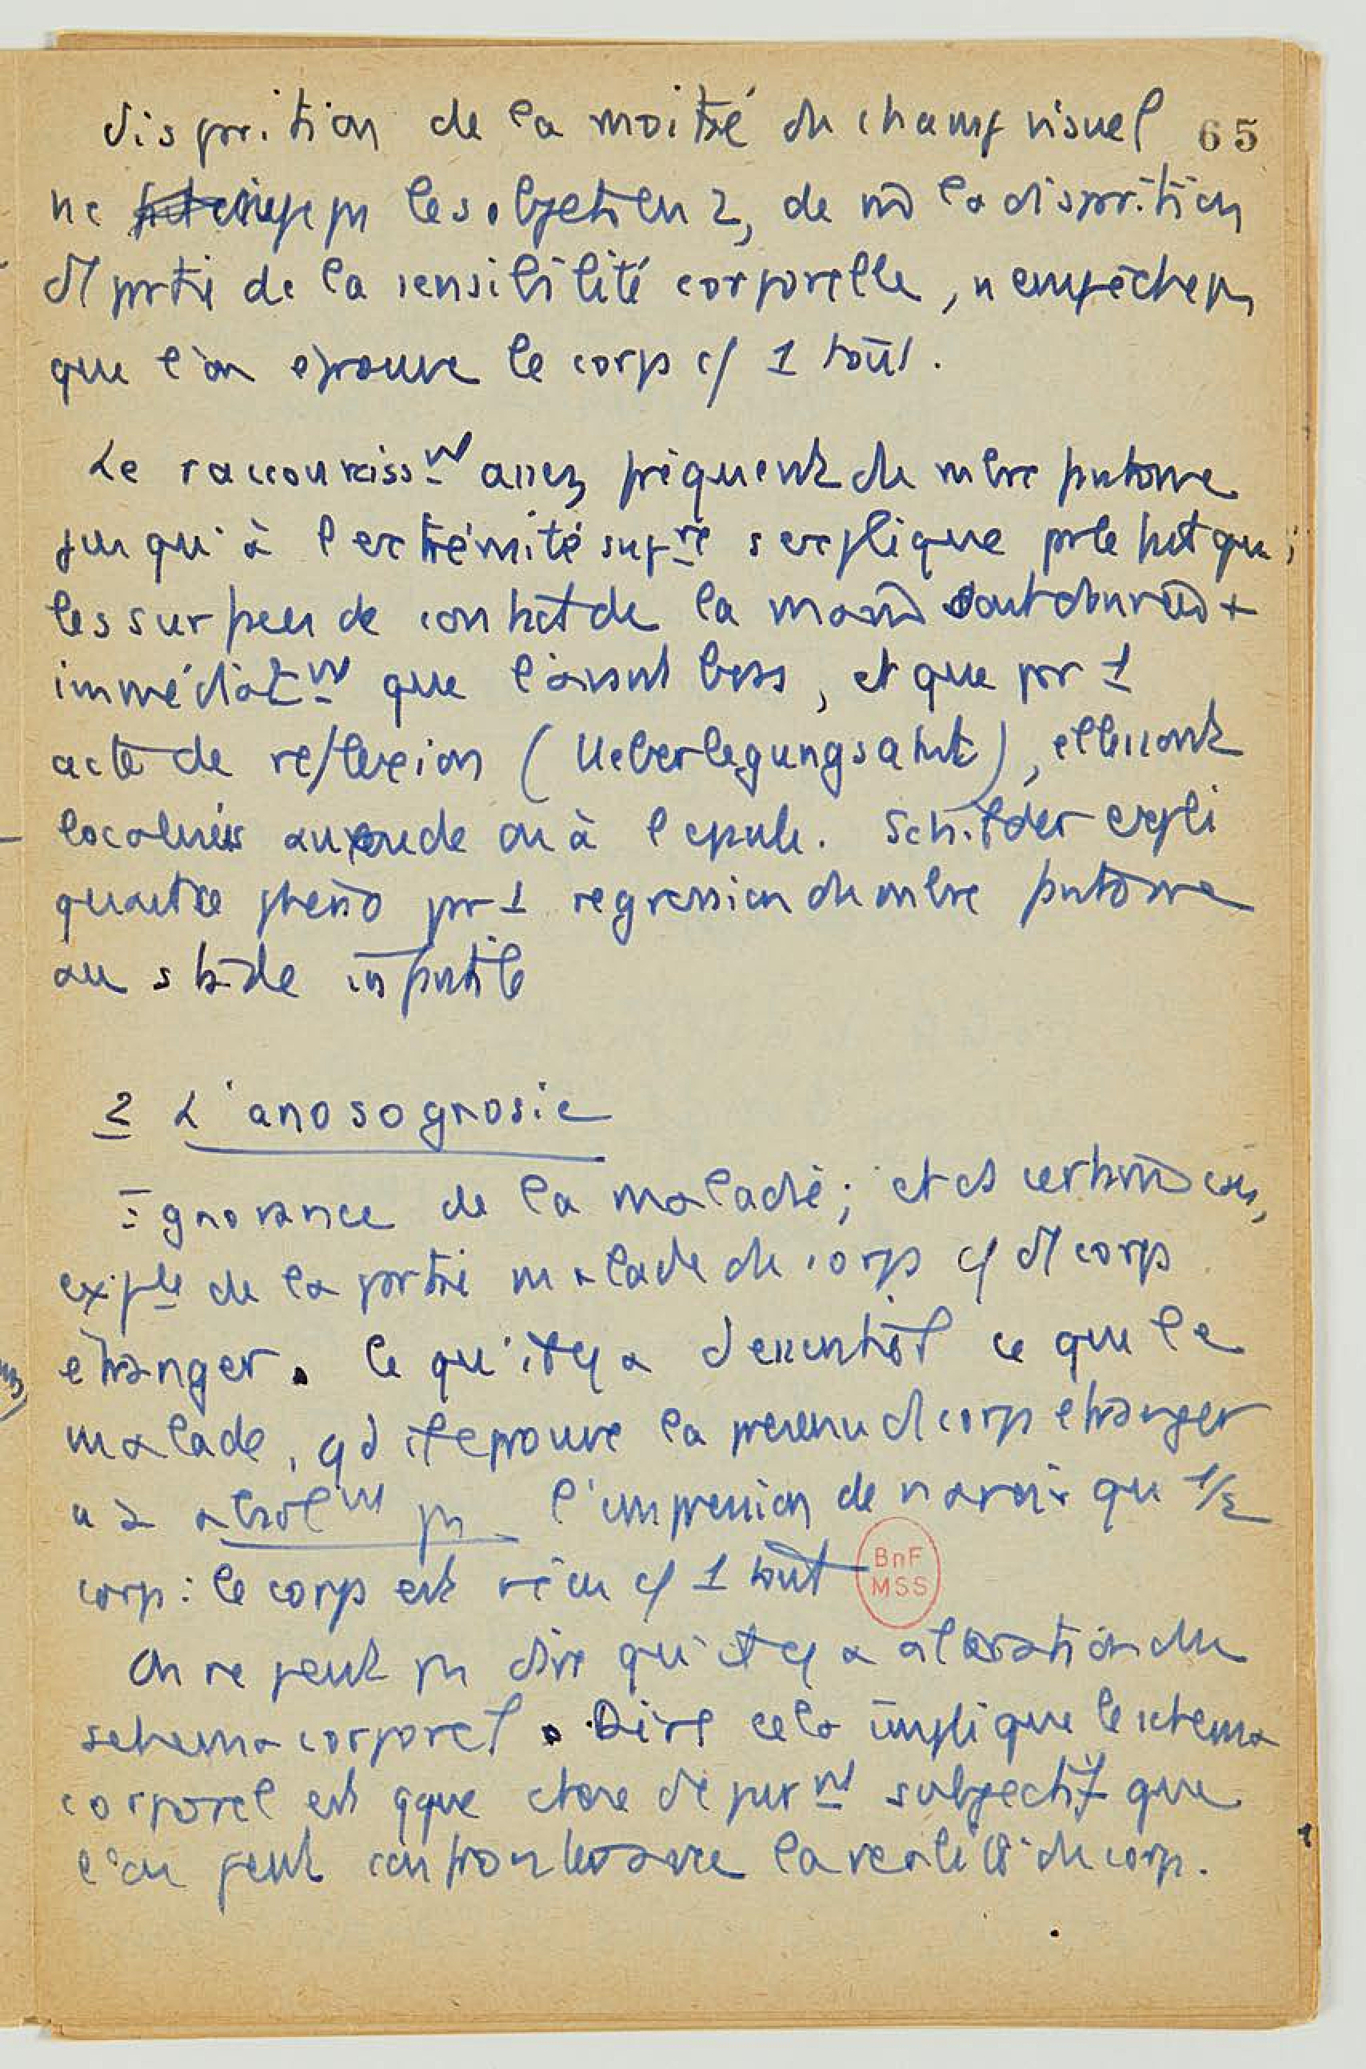 disparition de la moitié du champ visuel 65
ne coupe pas les objets en 2, de m̂ la disparition
d'1 partie de la sensibilité corporelle, n'empêche pas
que l'on éprouve le corps c/ 1 tout.
Le raccourcissnt assez fréquent du mbre fantome
jusqu'à l'extrémité supre s'explique par le fait que
les surfaces de contact de la main sont +
immédiatnt que l'avant bras, et que par 1
acte de reflexion (Ueberlegungsakt), elles sont
localisées au coude ou à l'epaule. Schilder expli
quait ce phéno par 1 regression du mbre fantome
au stade infantile
2 L'anosognosie
Ignorance de la maladie; et ds certains cas,
de la partie malade du corps c/ d'1 corps
étranger. Ce qu'il y a d'essentiel ce que le
malade, qd il éprouve la présence d'1 corps étranger
n'a absolnt pas l'impression de n'avoir qu' 1/2
corps: le corps est vécu c/ 1 tout
BnF
MSS
On ne peut pas dire qu'il y a altération du
schema corporel. Dire cela implique le schema
corporel est qque chose de purnt subjectif que
l'on peut confronter avec la realité du corps.